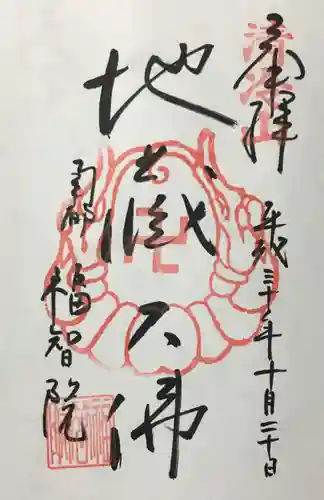 奉拝
平成三十年十月二十日
地蔵大佛
南都
福智院